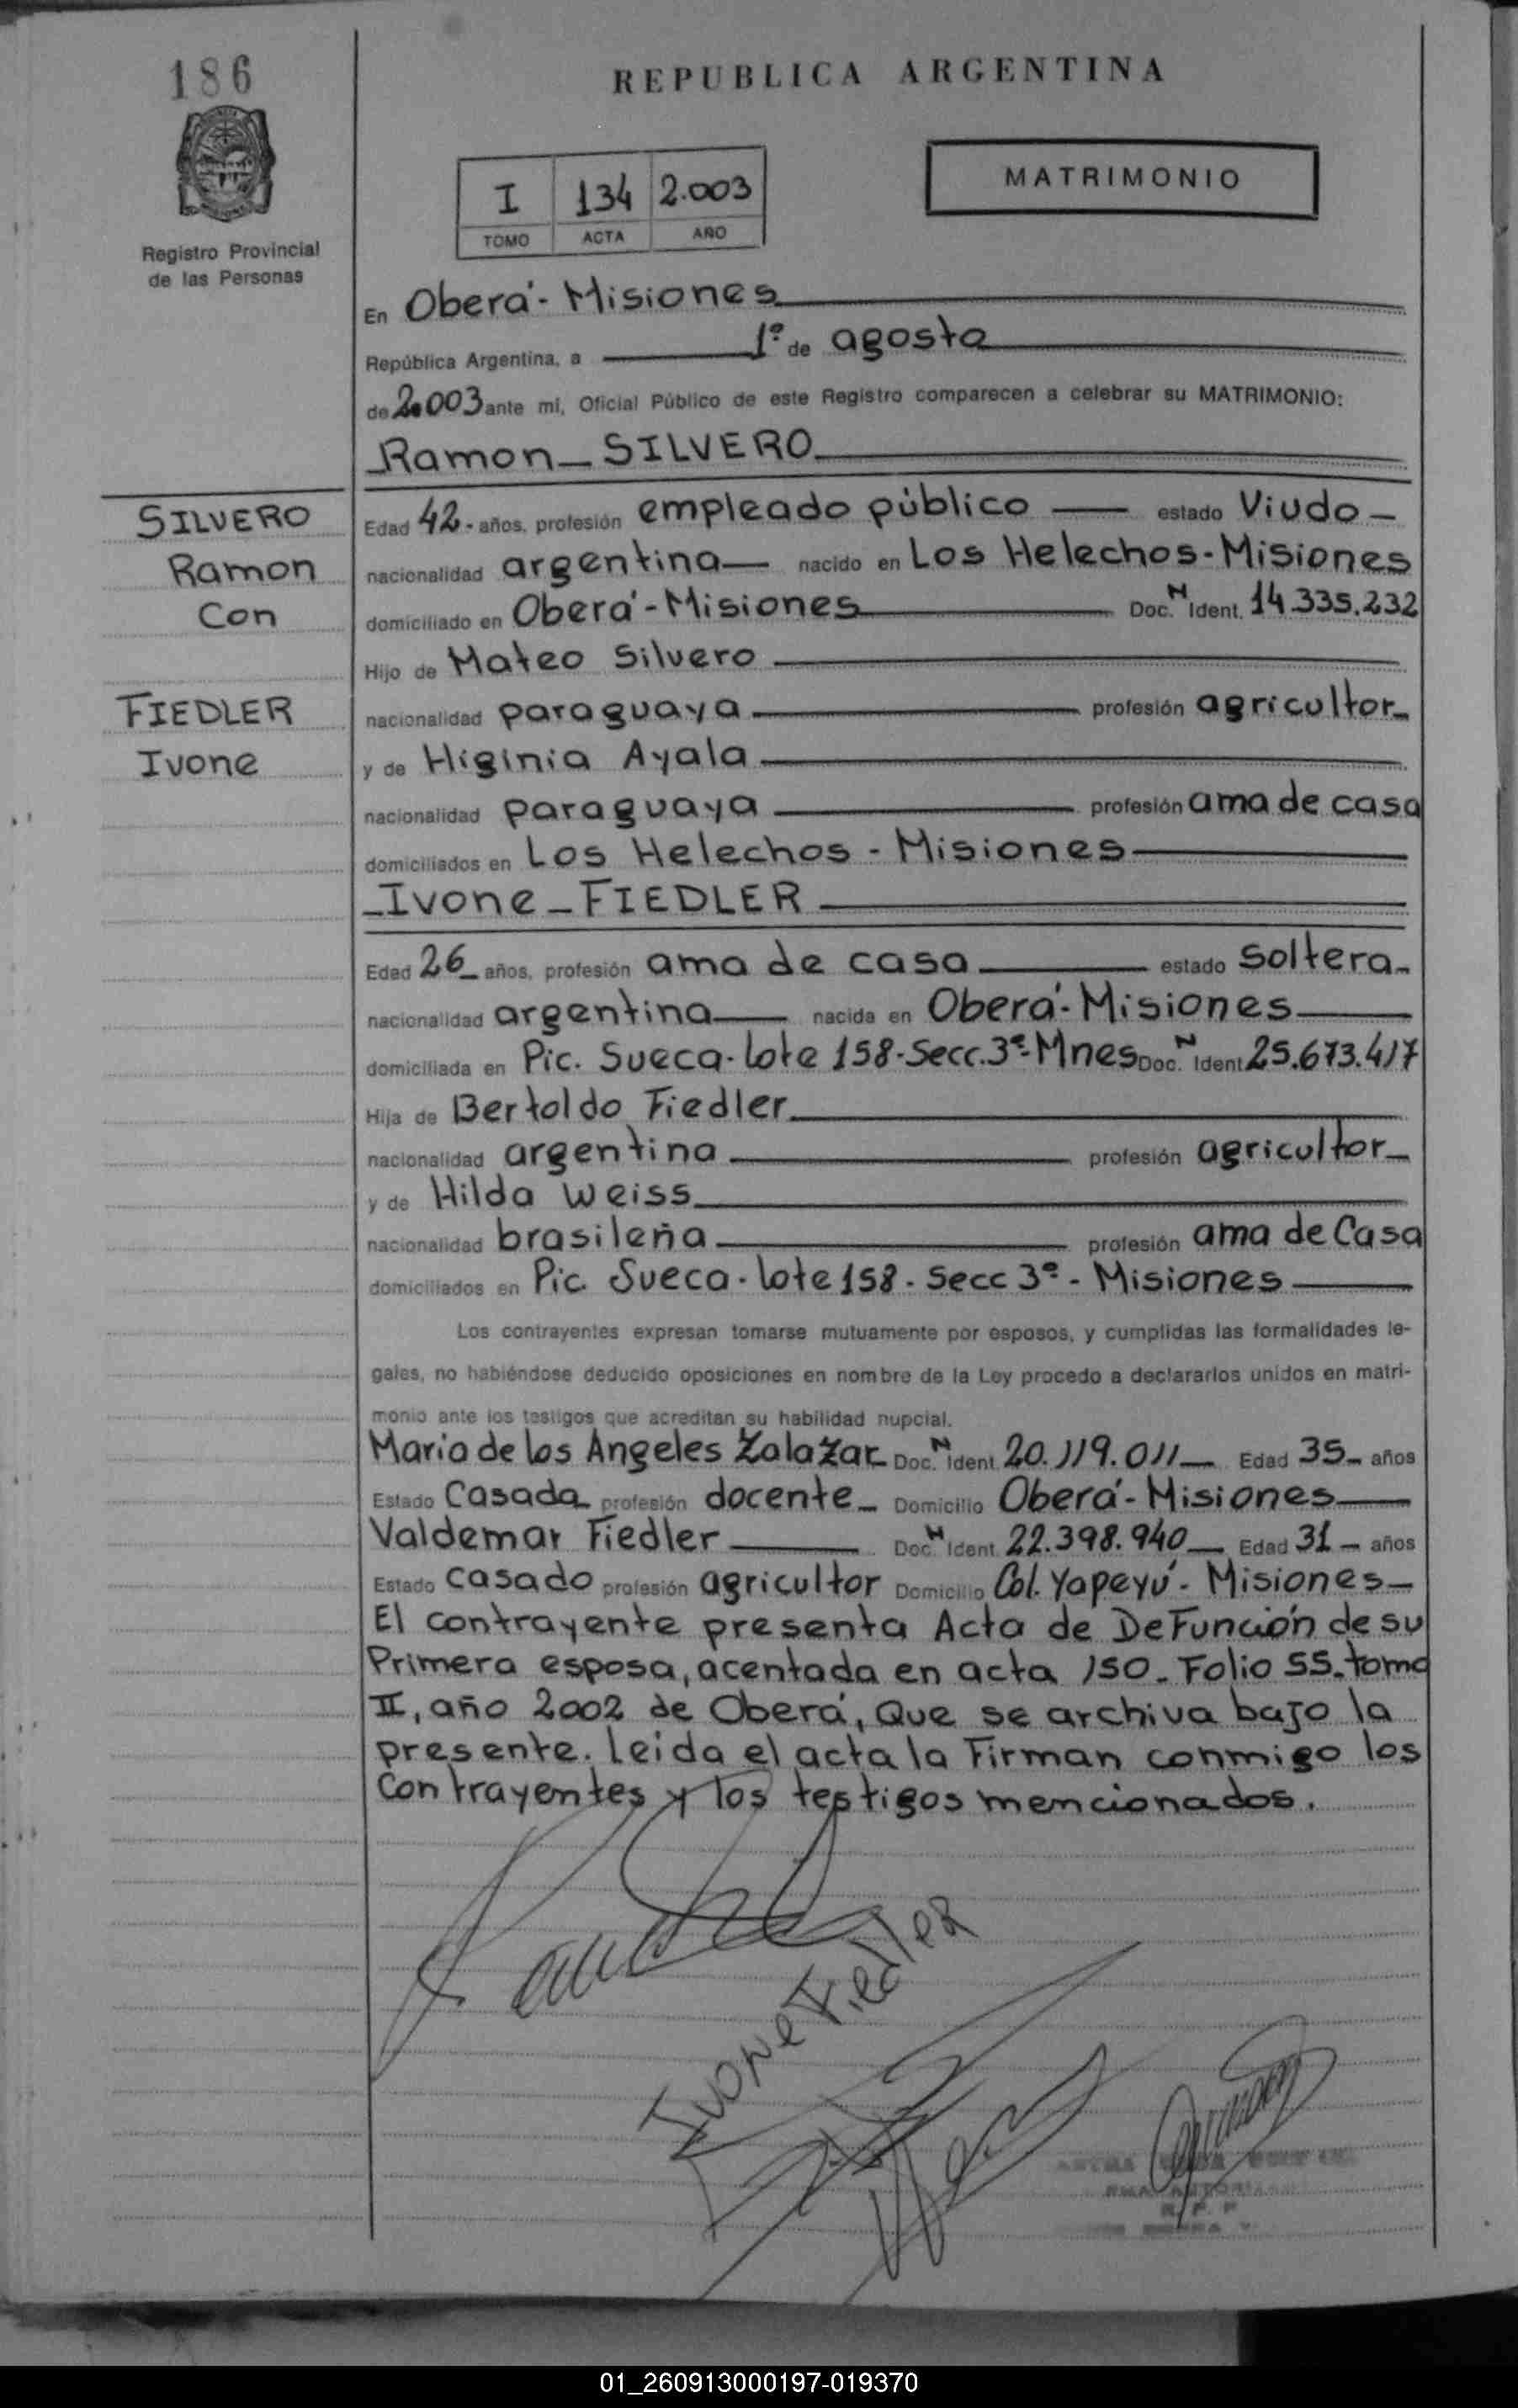 186
REPUBLICA ARGENTINA
MATRIMONIO
I 134 2.003
TOMO ACTA AÑO
Registro Provincial
de las Personas
En Oberá - Misiones
República Argentina, a 1º de agosto
de 2.003 ante mi, Oficial Público de este Registro comparecen a celebrar su MATRIMONIO:
Ramon SILVERO
SILVERO
Ramon
Con
FIEDLER
Ivone
Edad 42 - años, profesión empleado público estado Viudo
nacionalidad argentina nacido en Los Helechos - Misiones
domiciliado en Oberá - Misiones Doc. N Ident. 14.335.232
Hijo de Mateo Silvero
nacionalidad paraguaya profesión agricultor
y de Higinia Ayala
nacionalidad paraguaya profesión ama de casa
domiciliados en Los Helechos - Misiones
Ivone FIEDLER
Edad 26 años, profesión ama de casa estado soltera
nacionalidad argentina nacida en Oberá - Misiones
domiciliada en Pic. Sueca - lote 158 - Secc. 3º - Mnes Doc. N Ident 25.673.417
Hija de Bertoldo Fiedler
nacionalidad argentina profesión agricultor
y de Hilda Weiss
nacionalidad brasileña profesión ama de Casa
domiciliados en Pic. Sueca - lote 158 - Secc 3º - Misiones
Los contrayentes expresan tomarse mutuamente por esposos, y cumplidas las formalidades le-
gales, no habiéndose deducido oposiciones en nombre de la Ley procedo a declararlos unidos en matri-
monio ante los testigos que acreditan su habilidad nupcial.
Maria de los Angeles Zalazar Doc. N Ident. 20.119.011 Edad 35 años
Estado Casada profesión docente Domicilio Oberá - Misiones
Valdemar Fiedler Doc. N Ident. 22.398.940 Edad 31 años
Estado casado profesión agricultor Domicilio Col. Yapeyú - Misiones
El contrayente presenta Acta de Defunción de su
Primera esposa, acentada en acta 150 - Folio 55 - tomo
II, año 2002 de Oberá, Que se archiva bajo la
presente. Leida el acta la Firman conmigo los
Contrayentes y los testigos mencionados.
Ivone Fiedler
01_260913000197-019370